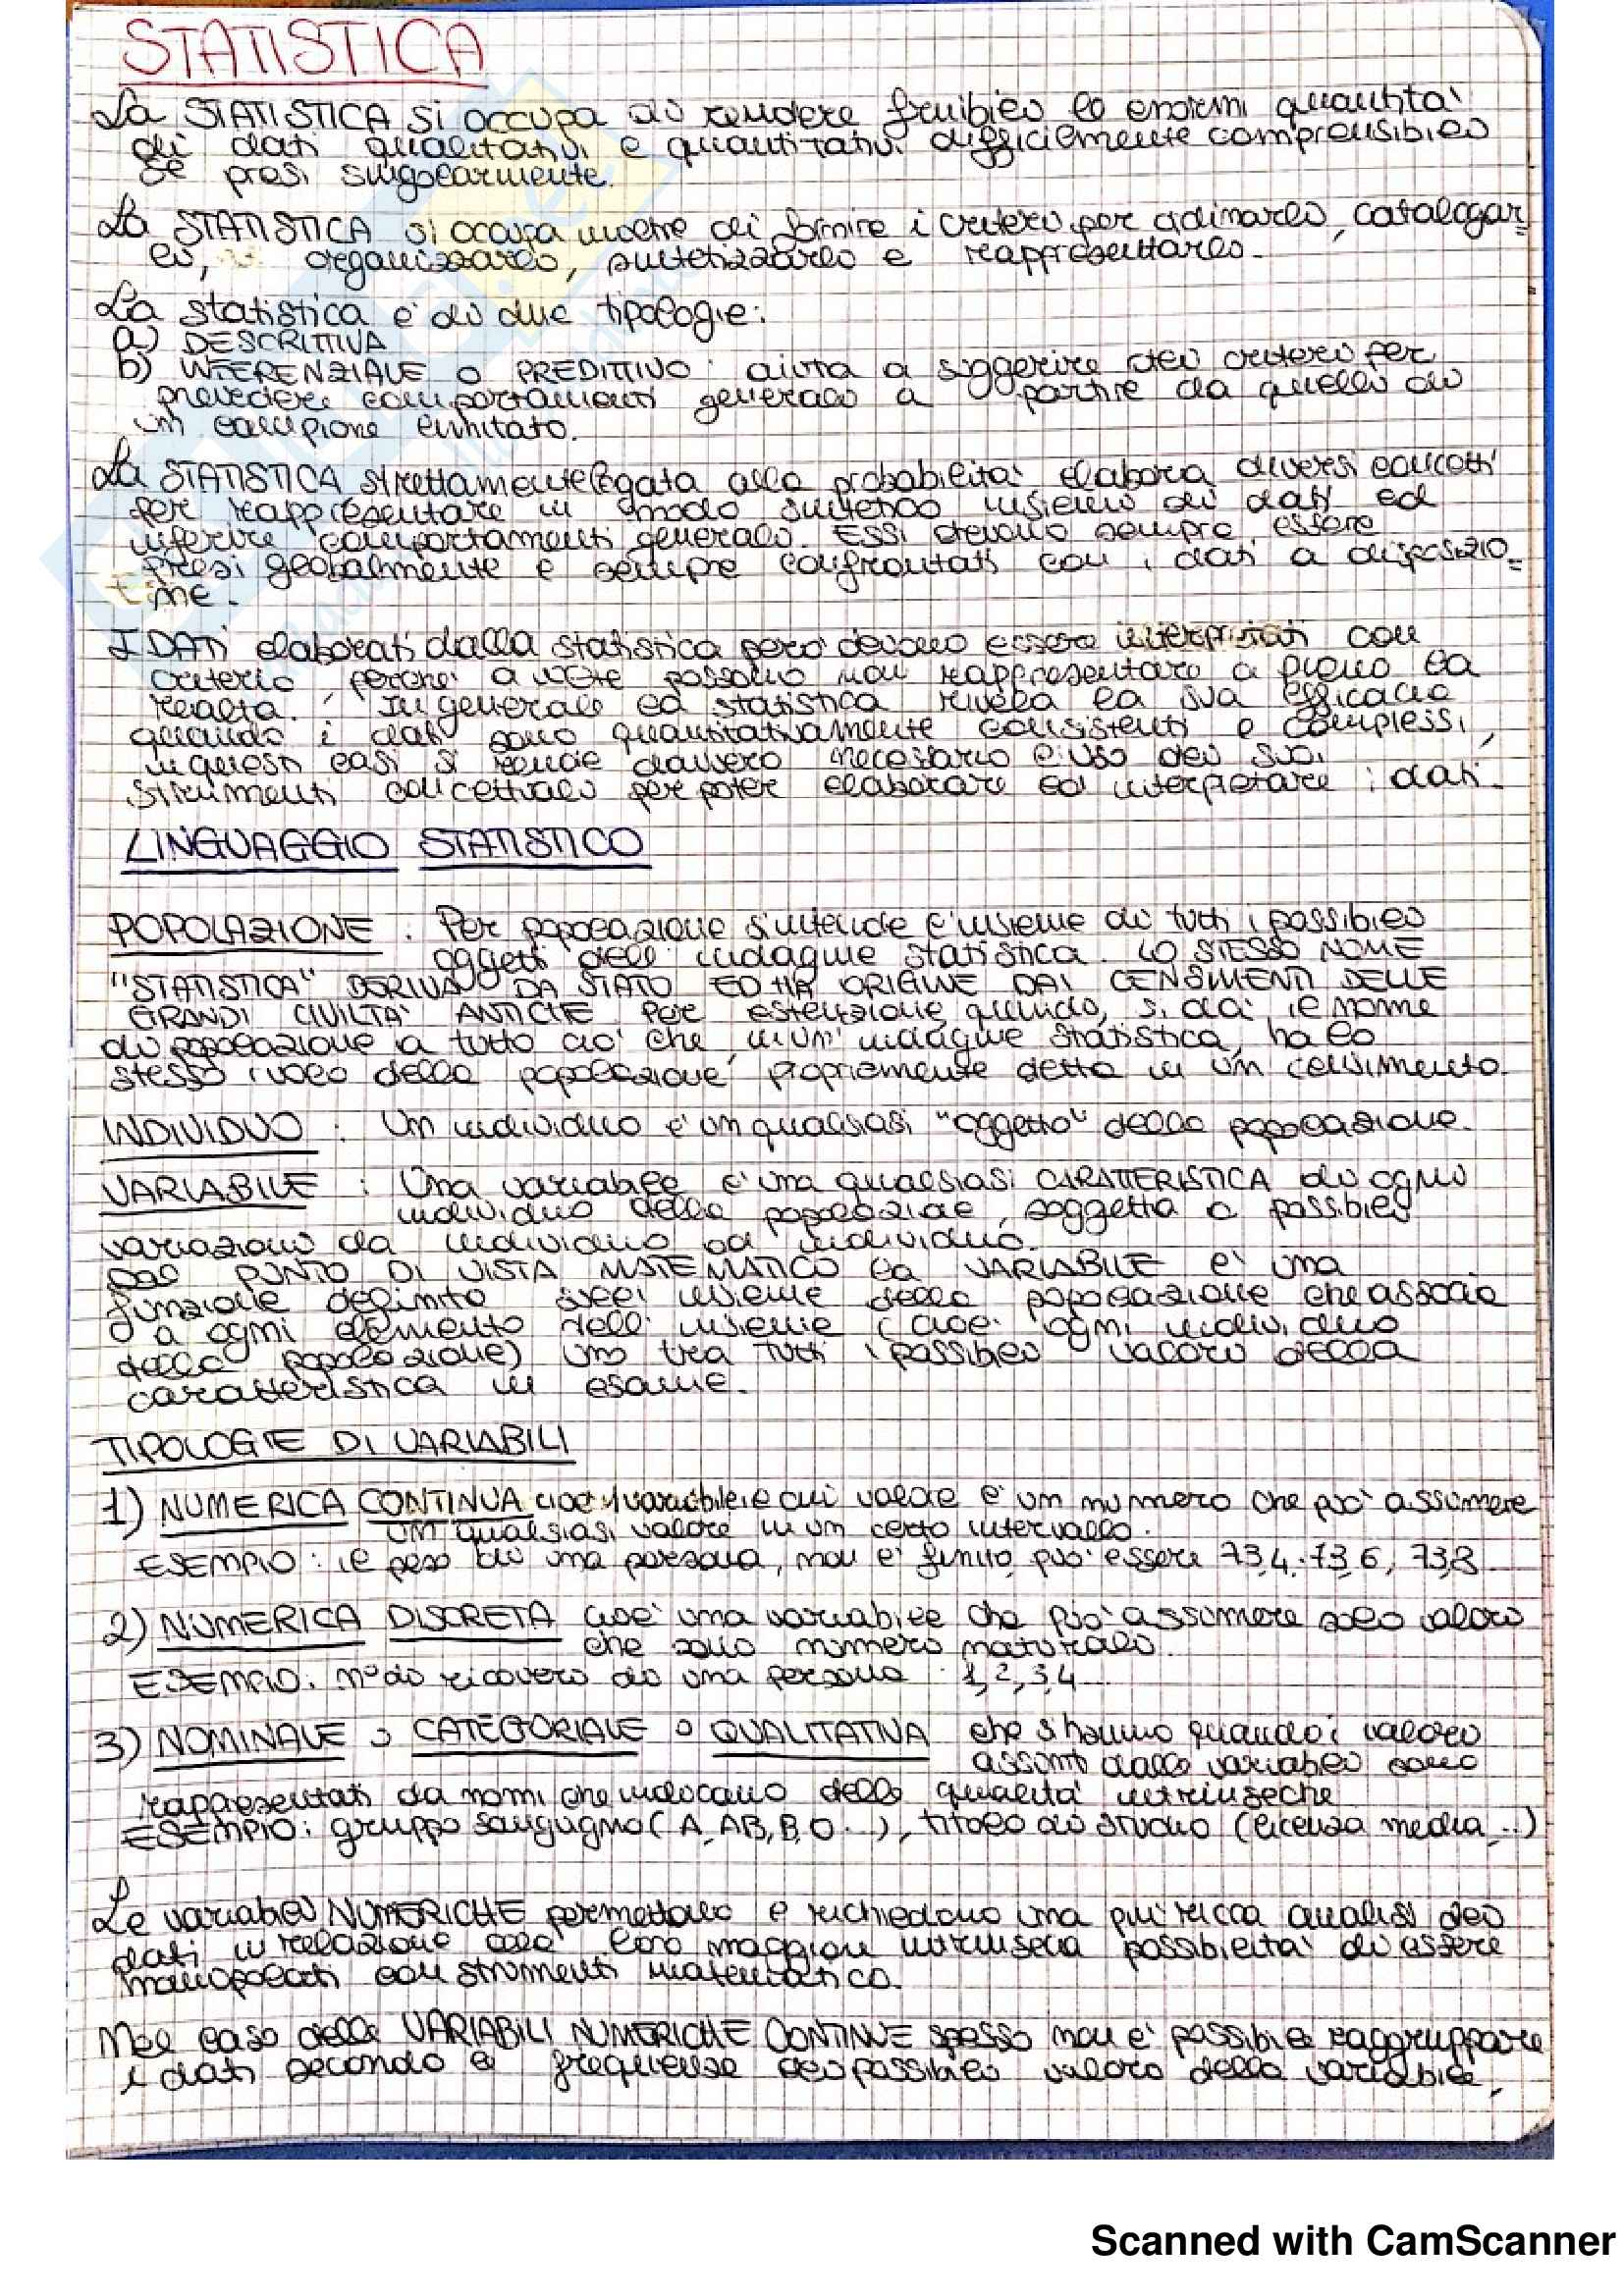 STATISTICA
La STATISTICA si occupa di rendere fruibili le enormi quantità
di dati qualitativi e quantitativi difficilmente comprensibili
se presi singolarmente.
La STATISTICA si occupa inoltre di fornire i criteri per ordinarli, catalogar=
li, organizzarli, sintetizzarli e rappresentarli.
La statistica è di due tipologie:
a) DESCRITTIVA
b) INFERENZIALE O PREDITTIVO: aiuta a suggerire dei criteri per
prevedere comportamenti generali a partire da quelli di
un campione limitato.
La STATISTICA strettamente legata alla probabilità elabora diversi concetti
per rappresentare in modo sintetico insiemi di dati ed
inferire comportamenti generali. Essi devono sempre essere
presi globalmente e sempre confrontati con i dati a disposizio=
ne.
I DATI elaborati dalla statistica però devono essere interpretati con
criterio perché a volte possono non rappresentare a pieno la
realtà. In generale la statistica rivela la sua efficacia
quando i dati sono quantitativamente consistenti e complessi,
in questi casi si rende davvero necessario l'uso dei suoi
strumenti concettuali per poter elaborare ed interpretare i dati.
LINGUAGGIO STATISTICO
POPOLAZIONE : Per popolazione s'intende l'insieme di tutti i possibili
oggetti dell'indagine statistica. LO STESSO NOME
"STATISTICA" DERIVA DA STATO ED HA ORIGINE DAI CENSIMENTI DELLE
GRANDI CIVILTÀ ANTICHE. Per estensione quindi, si dà il nome
di popolazione a tutto ciò che, in un'indagine statistica, ha lo
stesso ruolo della popolazione propriamente detta in un censimento.
INDIVIDUO : Un individuo è un qualsiasi "oggetto" della popolazione.
VARIABILE : Una variabile è una qualsiasi CARATTERISTICA di ogni
individuo della popolazione, soggetta a possibili
variazioni da individuo ad individuo.
DAL PUNTO DI VISTA MATEMATICO la VARIABILE è una
funzione definita sull'insieme della popolazione che associa
a ogni elemento dell'insieme (cioè ogni individuo
della popolazione) uno tra tutti i possibili valori della
caratteristica in esame.
TIPOLOGIE DI VARIABILI
1) NUMERICA CONTINUA cioè 1 variabile il cui valore è un numero che può assumere
un qualsiasi valore in un certo intervallo.
ESEMPIO: il peso di una persona, non è finito, può essere 73,4. 73,6, 73,8
2) NUMERICA DISCRETA cioè una variabile che può assumere solo valori
che sono numeri naturali.
ESEMPIO: n° di ricoveri di una persona : 1, 2, 3, 4...
3) NOMINALE o CATEGORIALE o QUALITATIVA che si hanno quando i valori
assunti dalle variabili sono
rappresentati da nomi che indicano delle qualità intrinseche
ESEMPIO: gruppo sanguigno (A, AB, B, O...), titolo di studio (licenza media,..)
Le variabili NUMERICHE permettono e richiedono una più ricca analisi dei
dati in relazione alla loro maggiore intrinseca possibilità di essere
manipolati con strumenti matematici.
Nel caso delle VARIABILI NUMERICHE CONTINUE spesso non è possibile raggruppare
i dati secondo le frequenze dei possibili valori della variabile,
Scanned with CamScanner